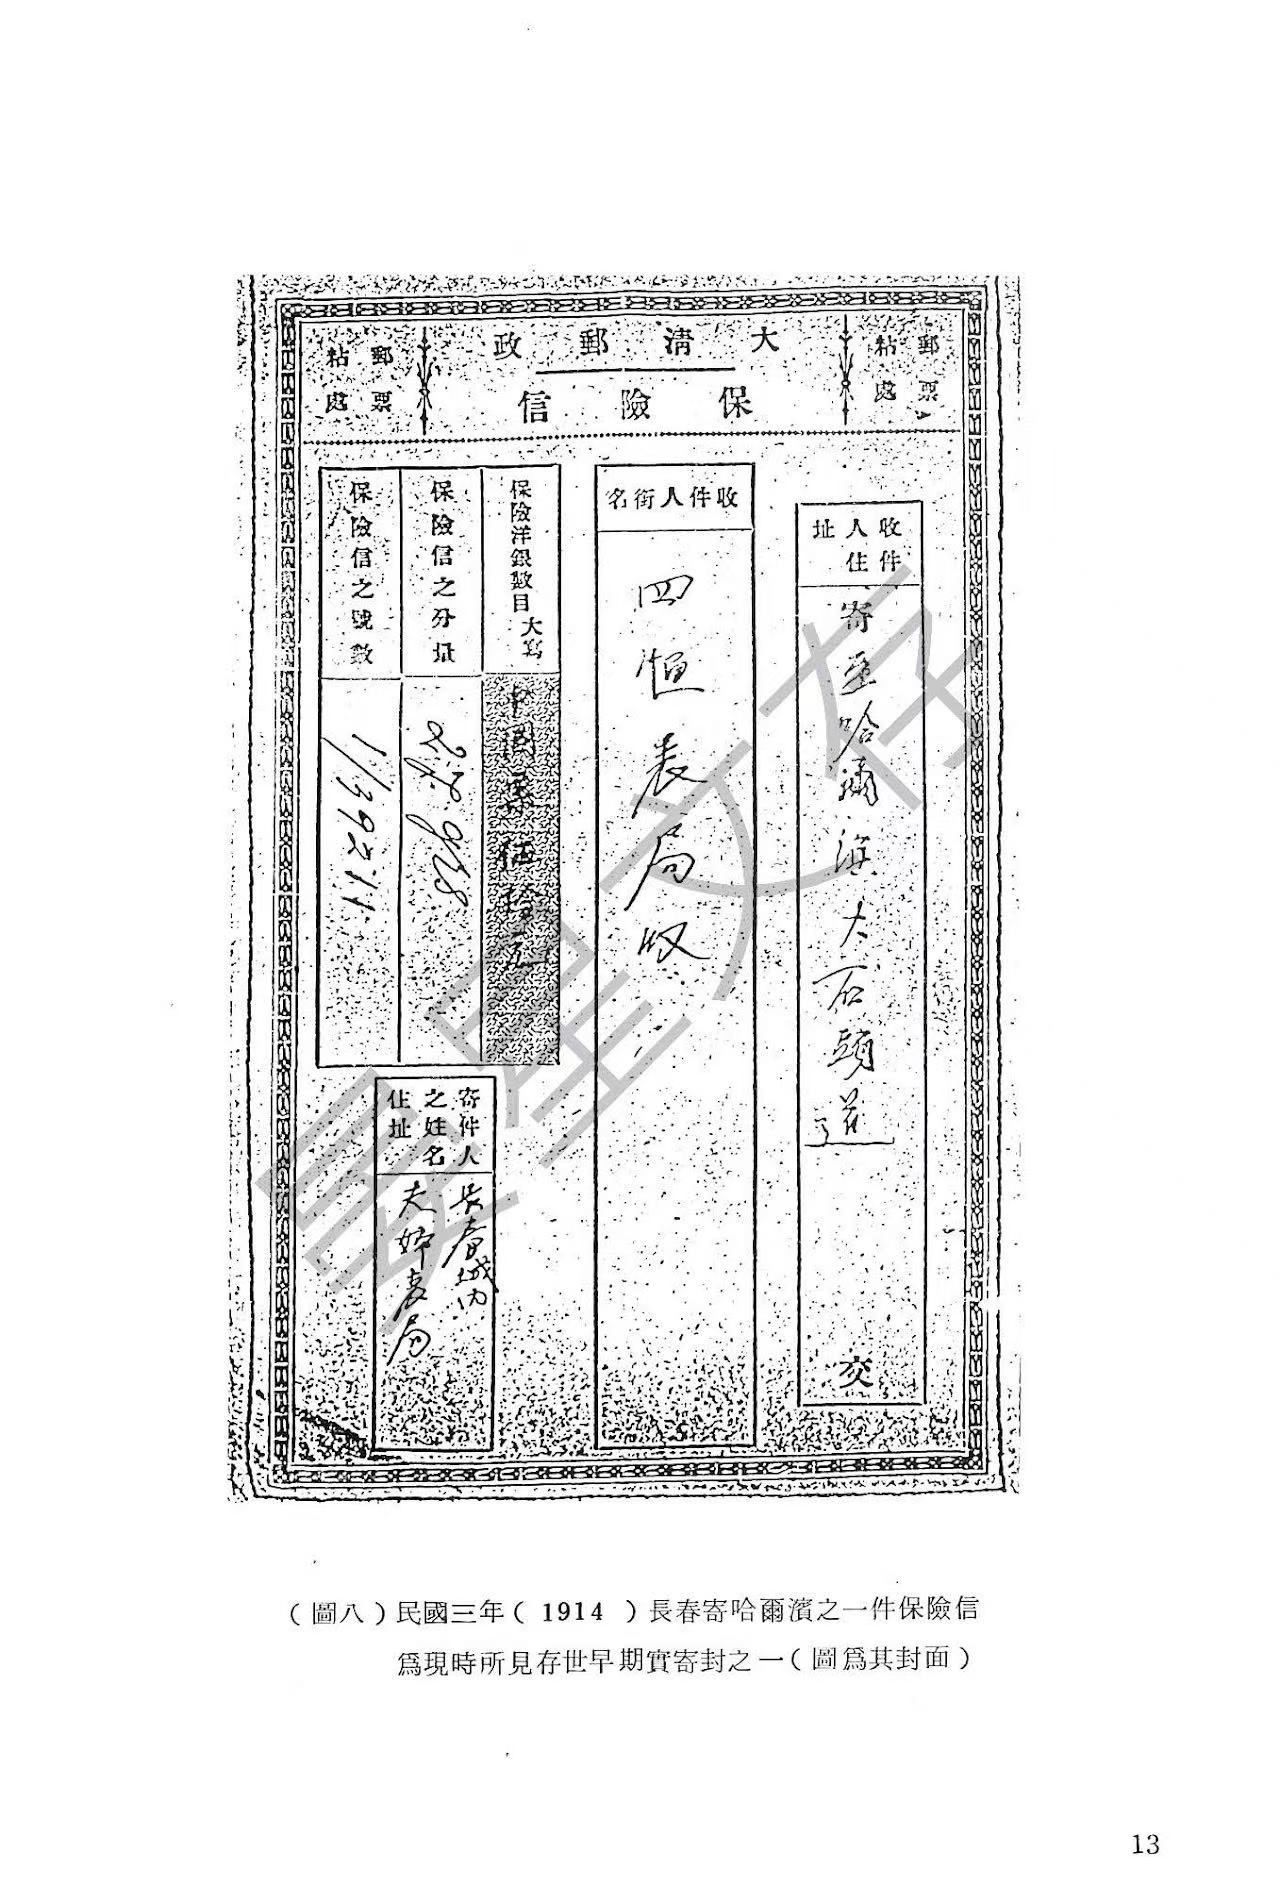 大清郵政
保險信
郵票
粘處
郵票
粘處
收件
人住
址
寄至哈爾濱大石頭道
交
收件人街名
四恒表局收
保險洋銀數目大寫
伍拾元
保險信之分量
保險信之號數
寄件人
之姓名
住址
長春城內
夫婦表局
晏星文存
(圖八)民國三年(1914)長春寄哈爾濱之一件保險信
為現時所見存世早期實寄封之一(圖為其封面)
13